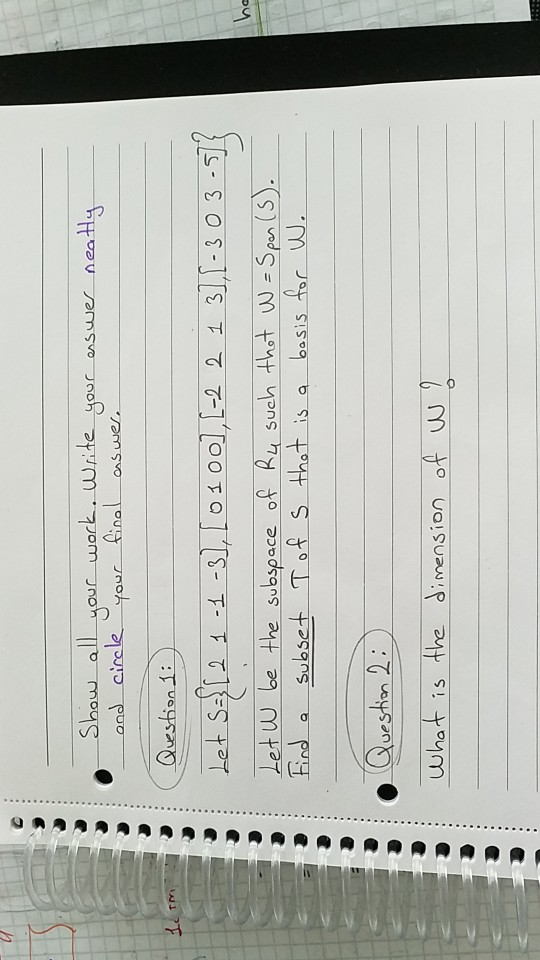 Show all your work. Write your answer neatly
and circle your final answer.
Question 1:
Let S={[2 1 -1 -3],[0 1 0 0],[-2 2 1 3],[-3 0 3 -5]}
Let W be the subspace of R4 such that W = Span(S).
Find a subset T of S that is a basis for W.
Question 2:
What is the dimension of W?